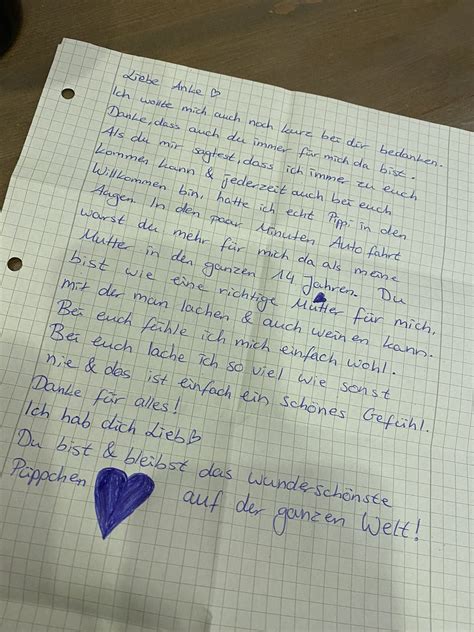 Liebe Anke ♡
Ich wollte mich auch noch kurz bei dir bedanken.
Danke, dass auch du immer für mich da bist.
Als du mir sagtest, dass ich immer zu euch
kommen kann & jederzeit auch bei euch
Willkommen bin, hatte ich echt Pippi in den
Augen. In den paar Minuten Autofahrt
warst du mehr für mich da als meine
Mutter in den ganzen 14 Jahren. Du
bist wie eine richtige Mutter für mich,
mit der man lachen & auch weinen kann.
Bei euch fühle ich mich einfach wohl.
Bei euch lache ich so viel wie sonst
nie & das ist einfach ein schönes Gefühl.
Danke für alles!
Ich hab dich Lieb♡
Du bist & bleibst das wunderschönste
Püppchen auf der ganzen Welt!